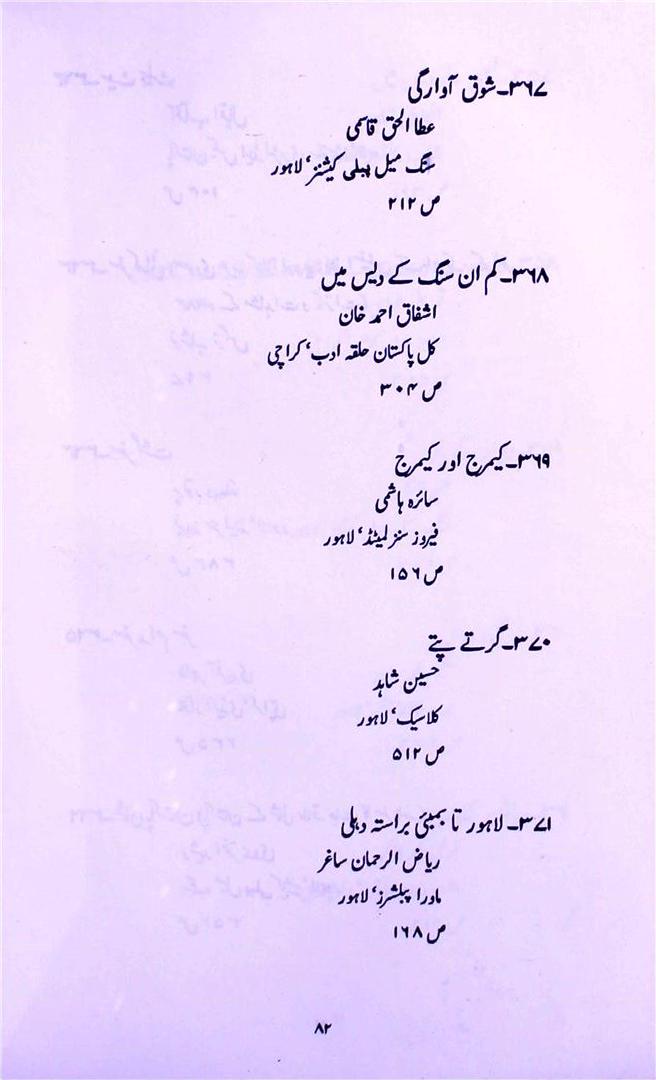 ۳۶۷۔شوق آوارگی
عطا الحق قاسمی
سنگ میل پبلی کیشنز‘ لاہور
ص ۲۱۲
۳۶۸۔کم ان سنگ کے دیس میں
اشفاق احمد خان
کل پاکستان حلقہ ادب‘ کراچی
ص ۳۰۴
۳۶۹۔کیمرج اور کیمرج
سائرہ ہاشمی
فیروز سنز لمیٹڈ‘ لاہور
ص ۱۵۶
۳۷۰۔گرتے پتے
حسین شاہد
کلاسیک‘ لاہور
ص ۵۱۲
۳۷۱۔ لاہور تا بمبئی براستہ دہلی
ریاض الرحمان ساغر
ماورا پبلشرز‘ لاہور
ص ۱۶۸
۸۲